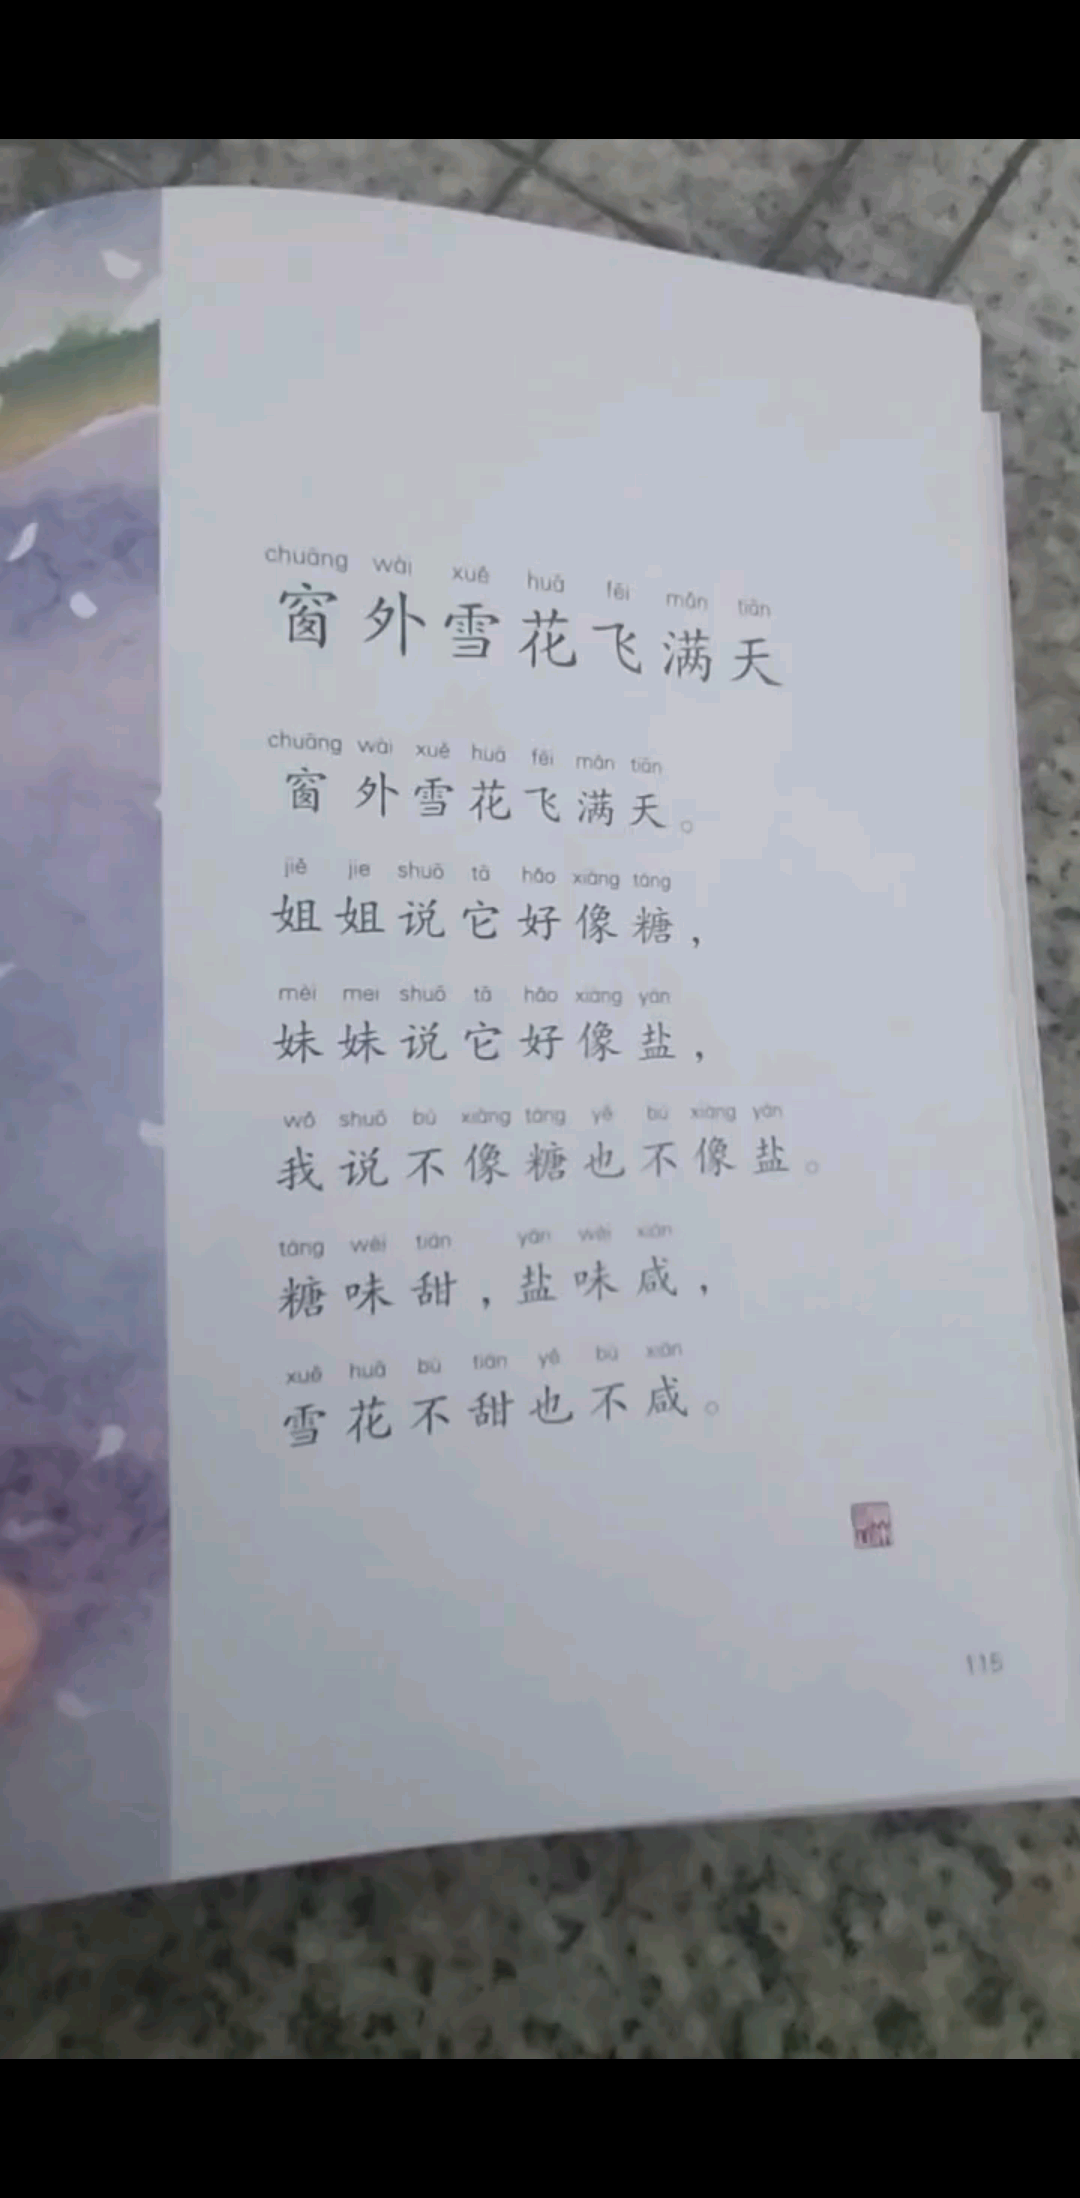 chuāng wài xuě huā fēi mǎn tiān
窗外雪花飞满天
chuāng wài xuě huā fēi mǎn tiān
窗外雪花飞满天。
jiě jie shuō tā hǎo xiàng táng
姐姐说它好像糖，
mèi mei shuō tā hǎo xiàng yán
妹妹说它好像盐，
wǒ shuō bú xiàng táng yě bú xiàng yán
我说不像糖也不像盐。
táng wèi tián yán wèi xián
糖味甜，盐味咸，
xuě huā bù tián yě bù xián
雪花不甜也不咸。
115